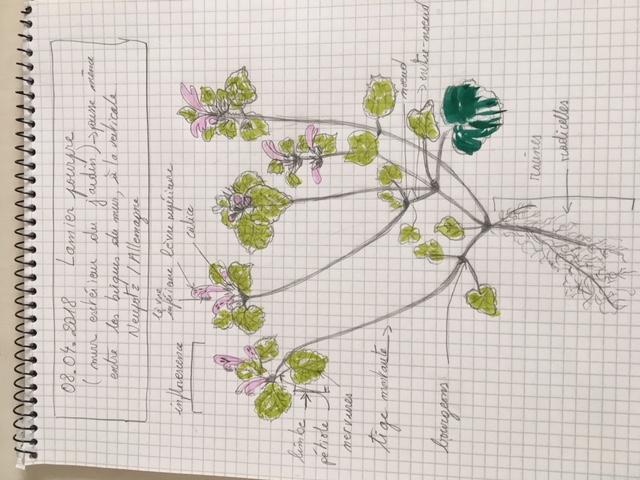 08.04.2018 Lamier pourpre
(mur extérieur du jardin) → pousse même
entre les briques du mur, à la verticale
/ Allemagne
lèvre
inférieure lèvre supérieure
calice
inflorescence
limbe
pétiole
nervures
tige montante
bourgeons
noeud
entre-noeud
racines
radicelles